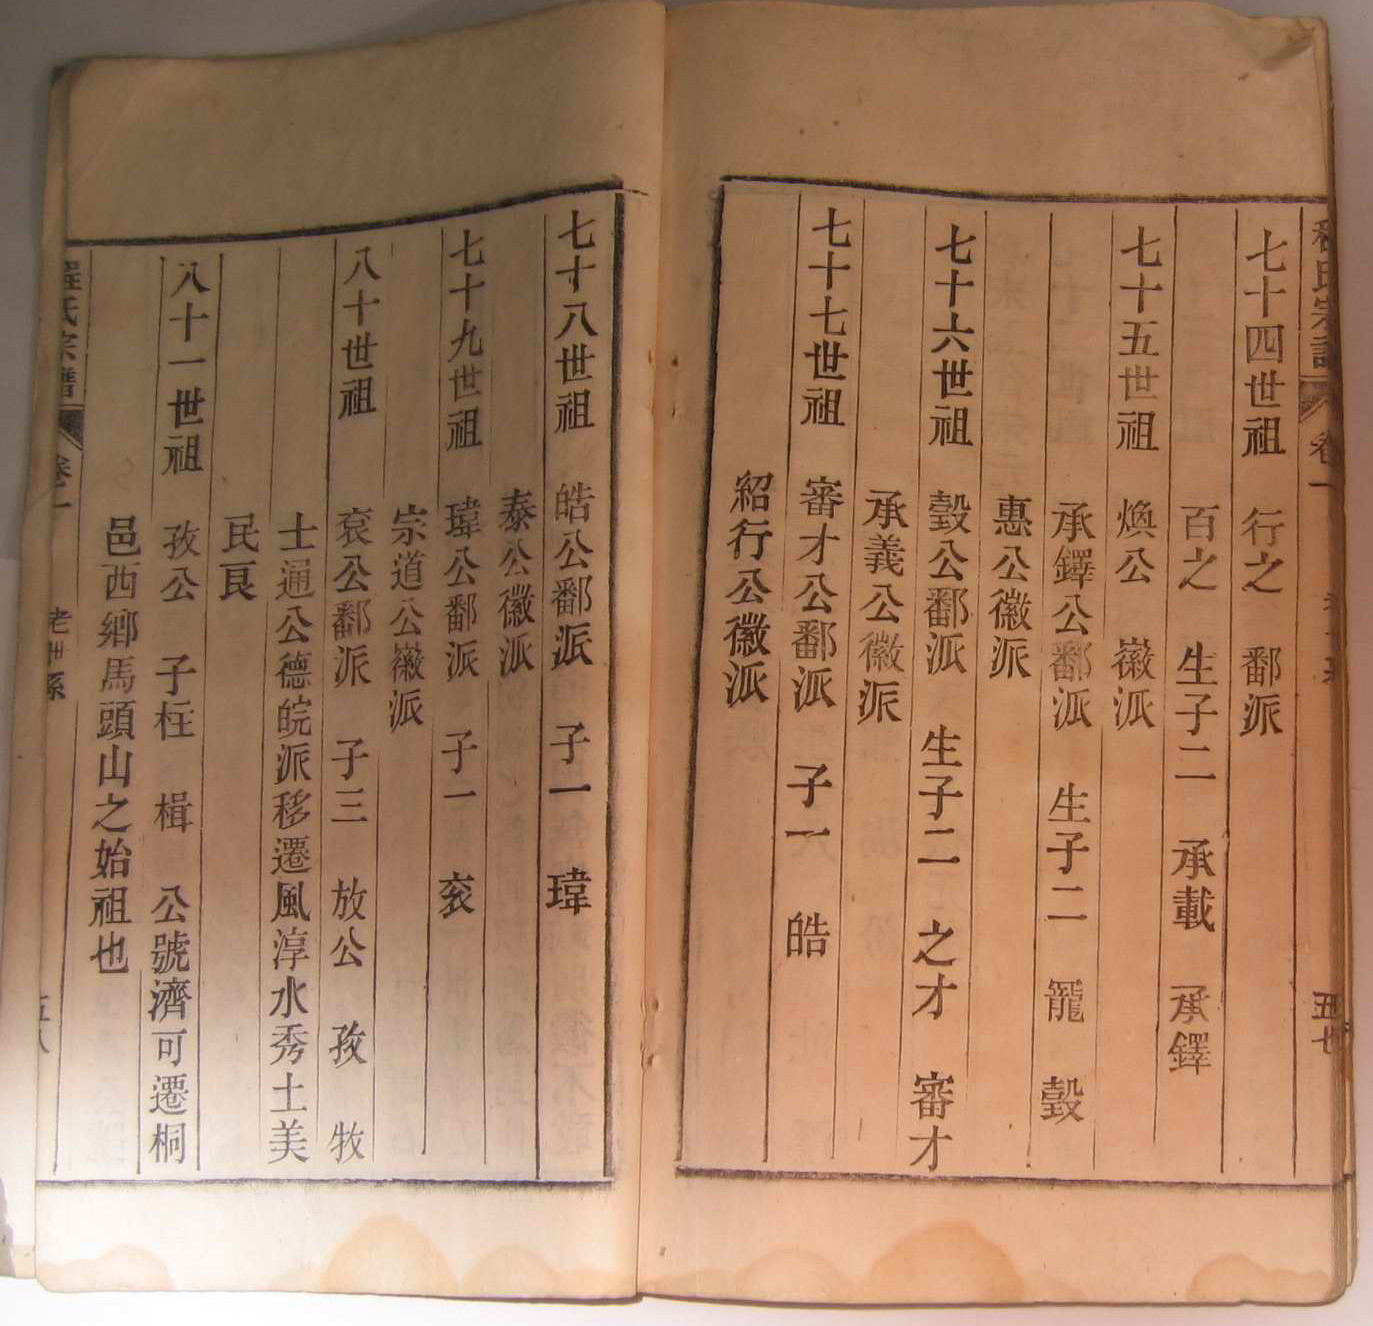 程氏宗譜 卷一 五七
七十四世祖 行之 鄱派
百之 生子二 承載 承鐸
七十五世祖 煥公 徽派
承鐸公鄱派 生子二 寵 瑴
惠公徽派
七十六世祖 瑴公鄱派 生子二 之才 審才
承義公徽派
七十七世祖 審才公鄱派 子一 皓
紹行公徽派
七十八世祖 皓公鄱派 子一 瑋
泰公徽派
七十九世祖 瑋公鄱派 子一 袞
宗道公徽派
八十世祖 袞公鄱派 子三 放公 孜 牧
士通公德皖派移遷風淳水秀土美
民良
八十一世祖 孜公 子柱 楫 公號濟可遷桐
邑西鄉馬頭山之始祖也
程氏宗譜 卷一 老世系 五八